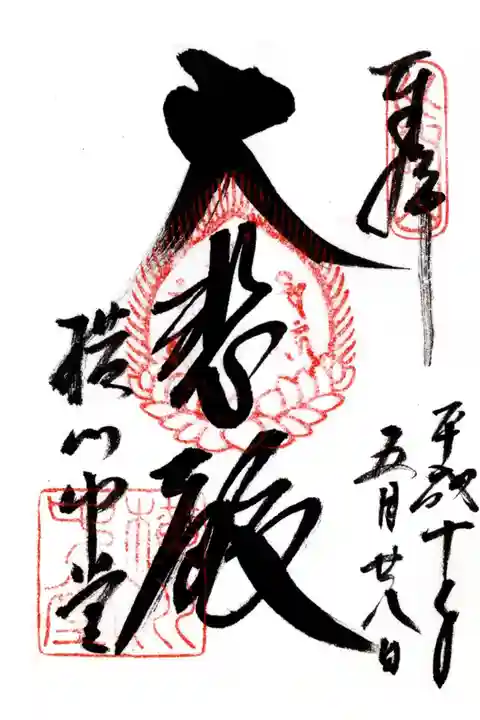 奉拝
平成十七年
五月廿八日
大悲殿
横川中堂